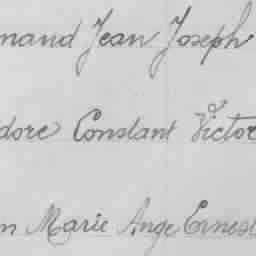 nand Jean Joseph
dore Constant Victor
n Marie Ange Ernest